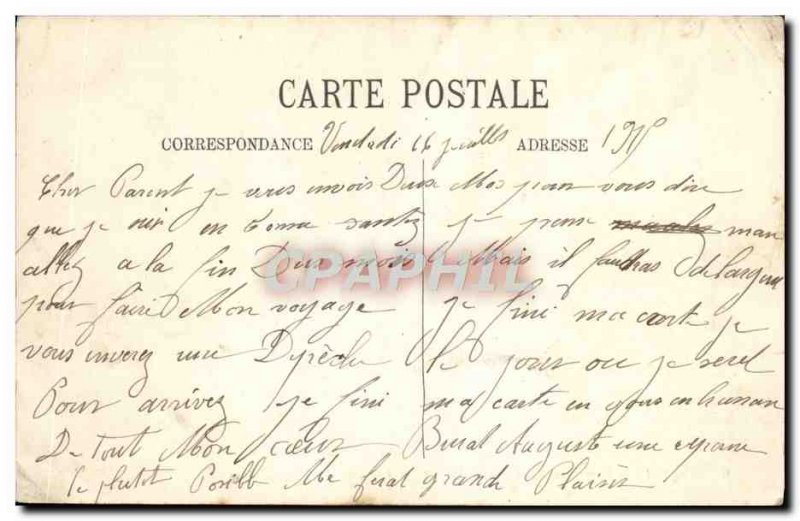 CARTE POSTALE
CORRESPONDANCE Vendredi 16 juillés ADRESSE
Cher Parent je vous envois Deux Mos pour vous dire
que je suis en bonne santez je pense man
allez a la fin Dus mois Mais il faudras de largen
pour faire Mon voyage je fini ma carte je
vous enverez une Dépèche le jour ou je serel
Pour arrivez je fini ma carte en vous en
De tout Mon cœur Auguste une
le plutot Me feral grande Plaisir
CPAPHIL